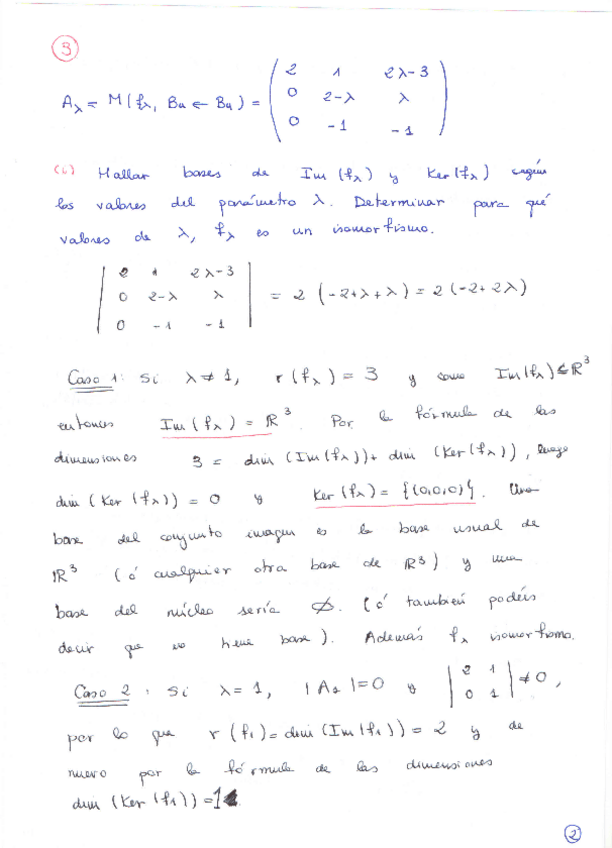 3
A_λ = M(f_λ, Bu ← Bu) = ( 2 1 2λ-3
0 2-λ λ
0 -1 -1 )
(b) Hallar bases de Im(f_λ) y Ker(f_λ) según
los valores del parámetro λ. Determinar para qué
valores de λ, f_λ es un isomorfismo.
| 2 1 2λ-3 |
| 0 2-λ λ | = 2 (-2+λ+λ) = 2(-2+2λ)
| 0 -1 -1 |
Caso 1: Si λ≠1, r(f_λ) = 3 y como Im(f_λ)⊆ℝ³
entonces Im(f_λ) = ℝ³. Por la fórmula de las
dimensiones 3 = dim(Im(f_λ)) + dim(Ker(f_λ)), luego
dim(Ker(f_λ)) = 0 y Ker(f_λ) = {(0,0,0)}. Una
base del conjunto imagen es la base usual de
ℝ³ (ó cualquier otra base de ℝ³) y una
base del núcleo sería ∅. (ó también podéis
decir que no tiene base). Además f_λ isomorfismo.
Caso 2: Si λ=1, |A₁|=0 y | 2 1 | ≠0,
| 0 1 |
por lo que r(f₁)=dim(Im(f₁)) = 2 y de
nuevo por la fórmula de las dimensiones
dim(Ker(f₁))=1
2